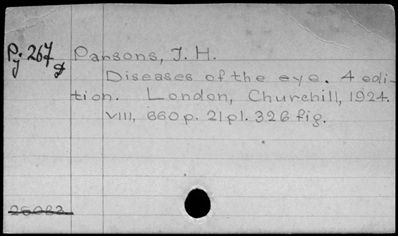 Py. 267 Parsons, J. H.
Diseases of the eye. 4 edi-
tion. London, Churchill, 1924.
VIII, 660 p. 21 pl. 326 fig.